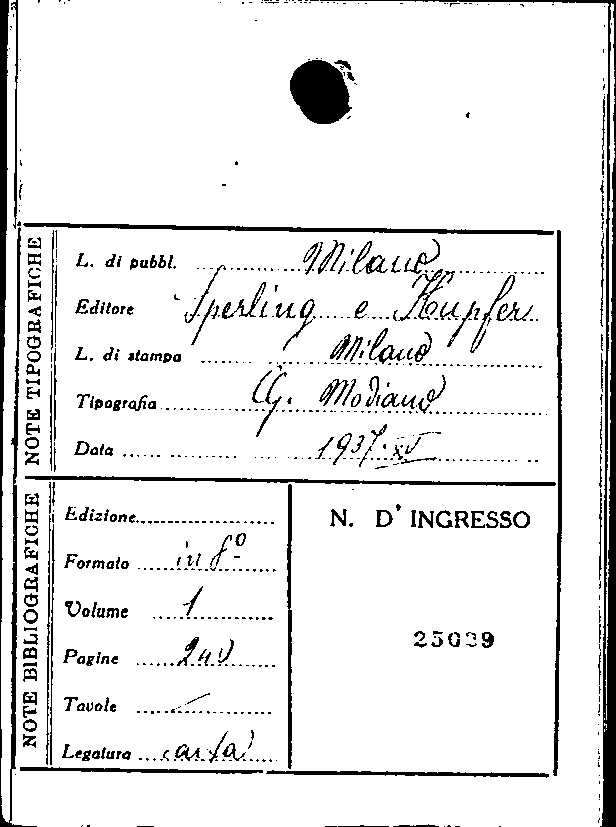 NOTE TIPOGRAFICHE
L. di pubbl. Milano
Editore Sperling e Kupfer
L. di stampa Milano
Tipografia G. Modiano
Data 1937. XV
NOTE BIBLIOGRAFICHE
Edizione
Formato in 8º
Volume 1
Pagine
Tavole /
Legatura carta
N. D' INGRESSO
25039